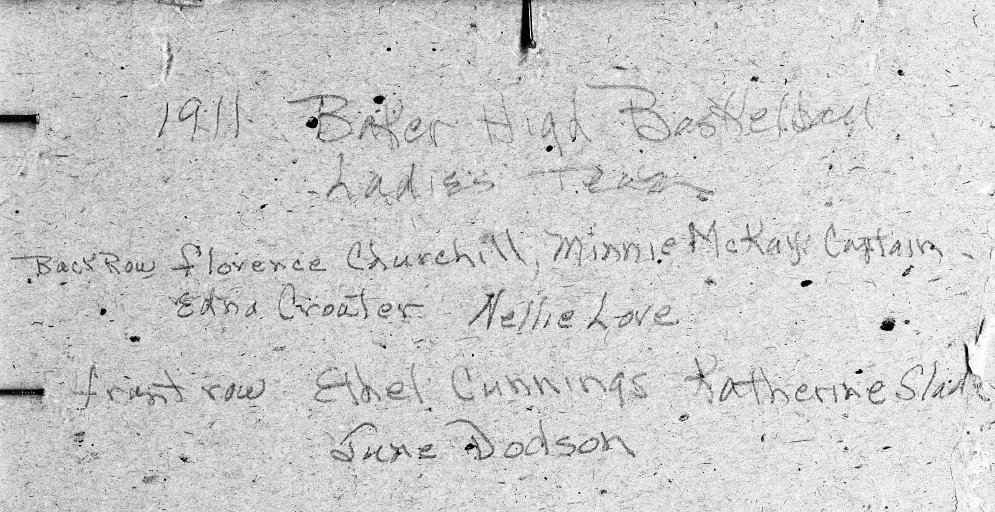 1911 Baker High Basketball
Ladies Team
Back Row Florence Churchill, Minnie McKay Captain
Edna Croater Nellie Love
front row Ethel Cunnings Katherine Slade
June Dodson